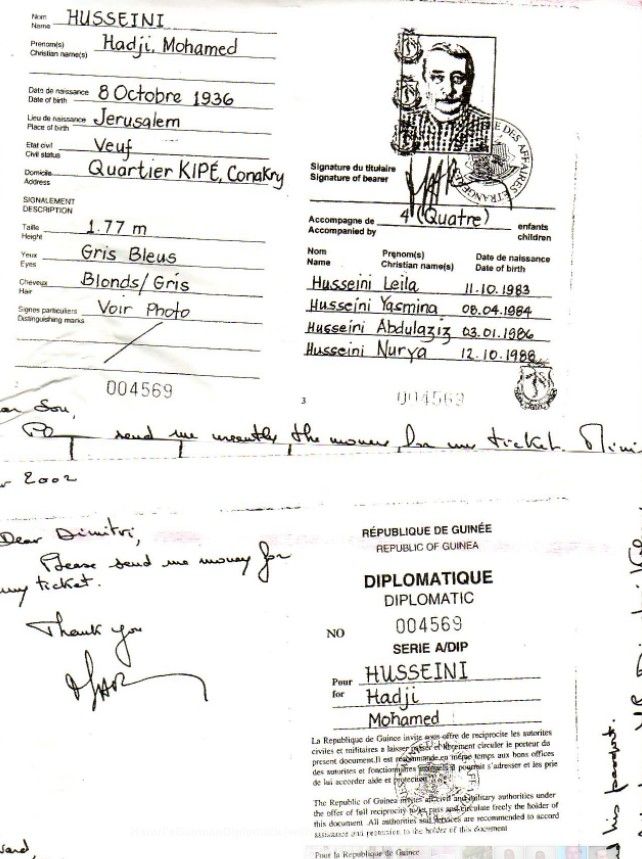 Nom
Name
HUSSEINI
Prenom(s)
Christian name(s)
Hadji, Mohamed
Date de naissance
Date of birth
8 Octobre 1936
Lieu de naissance
Place of birth
Jerusalem
Etat civil
Civil status
Veuf
Domicile
Address
Quartier KIPÉ, Conakry
SIGNALEMENT
DESCRIPTION
Taille
Height
1.77 m
Yeux
Eyes
Gris Bleus
Cheveux
Hair
Blonds/Gris
Signes particuliers
Distinguishing marks
Voir Photo
004569
DES AFFAIRES ETRANGE
Signature du titulaire
Signature of bearer
Accompagne de
Accompanied by
4 (Quatre)
enfants
children
Nom
Name
Prenom(s)
Christian name(s)
Date de naissance
Date of birth
Husseini Leila 11.10.1983
Husseini Yasmina 08.04.1984
Husseini Abdulaziz 03.01.1986
Husseini Nurya 12.10.1988
3
004569
Son,
send me urgently the money for my ticket.
2002
Dear Dimitri,
Please send me money for
my ticket.
Thank you
RÉPUBLIQUE DE GUINÉE
REPUBLIC OF GUINEA
DIPLOMATIQUE
DIPLOMATIC
NO 004569
SERIE A/DIP
Pour
for
HUSSEINI
Hadji
Mohamed
La Republique de Guinee invite sous offre de reciprocite les autorites
civiles et militaires a laisser passer et librement circuler le porteur du
present document. Il est recommande en même temps aux bons offices
des autorites et fonctionnaires auxquels il pourrait s'adresser et les prie
de lui accorder aide et protection
The Republic of Guinea invites all civil and military authorities under
the offer of full reciprocity to let pass and circulate freely the holder of
this document. All authorities and services are recommended to accord
assistance and protection to the holder of this document
Pour la Republique de Guinee
his passport.